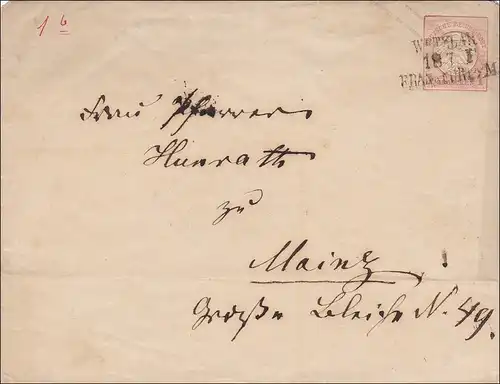 1 6
WETZLAR
18 7 I
FRANKFURT a M
Frau Pfarrer
Hunrath
zu
Mainz !
Große Bleiche N. 49.